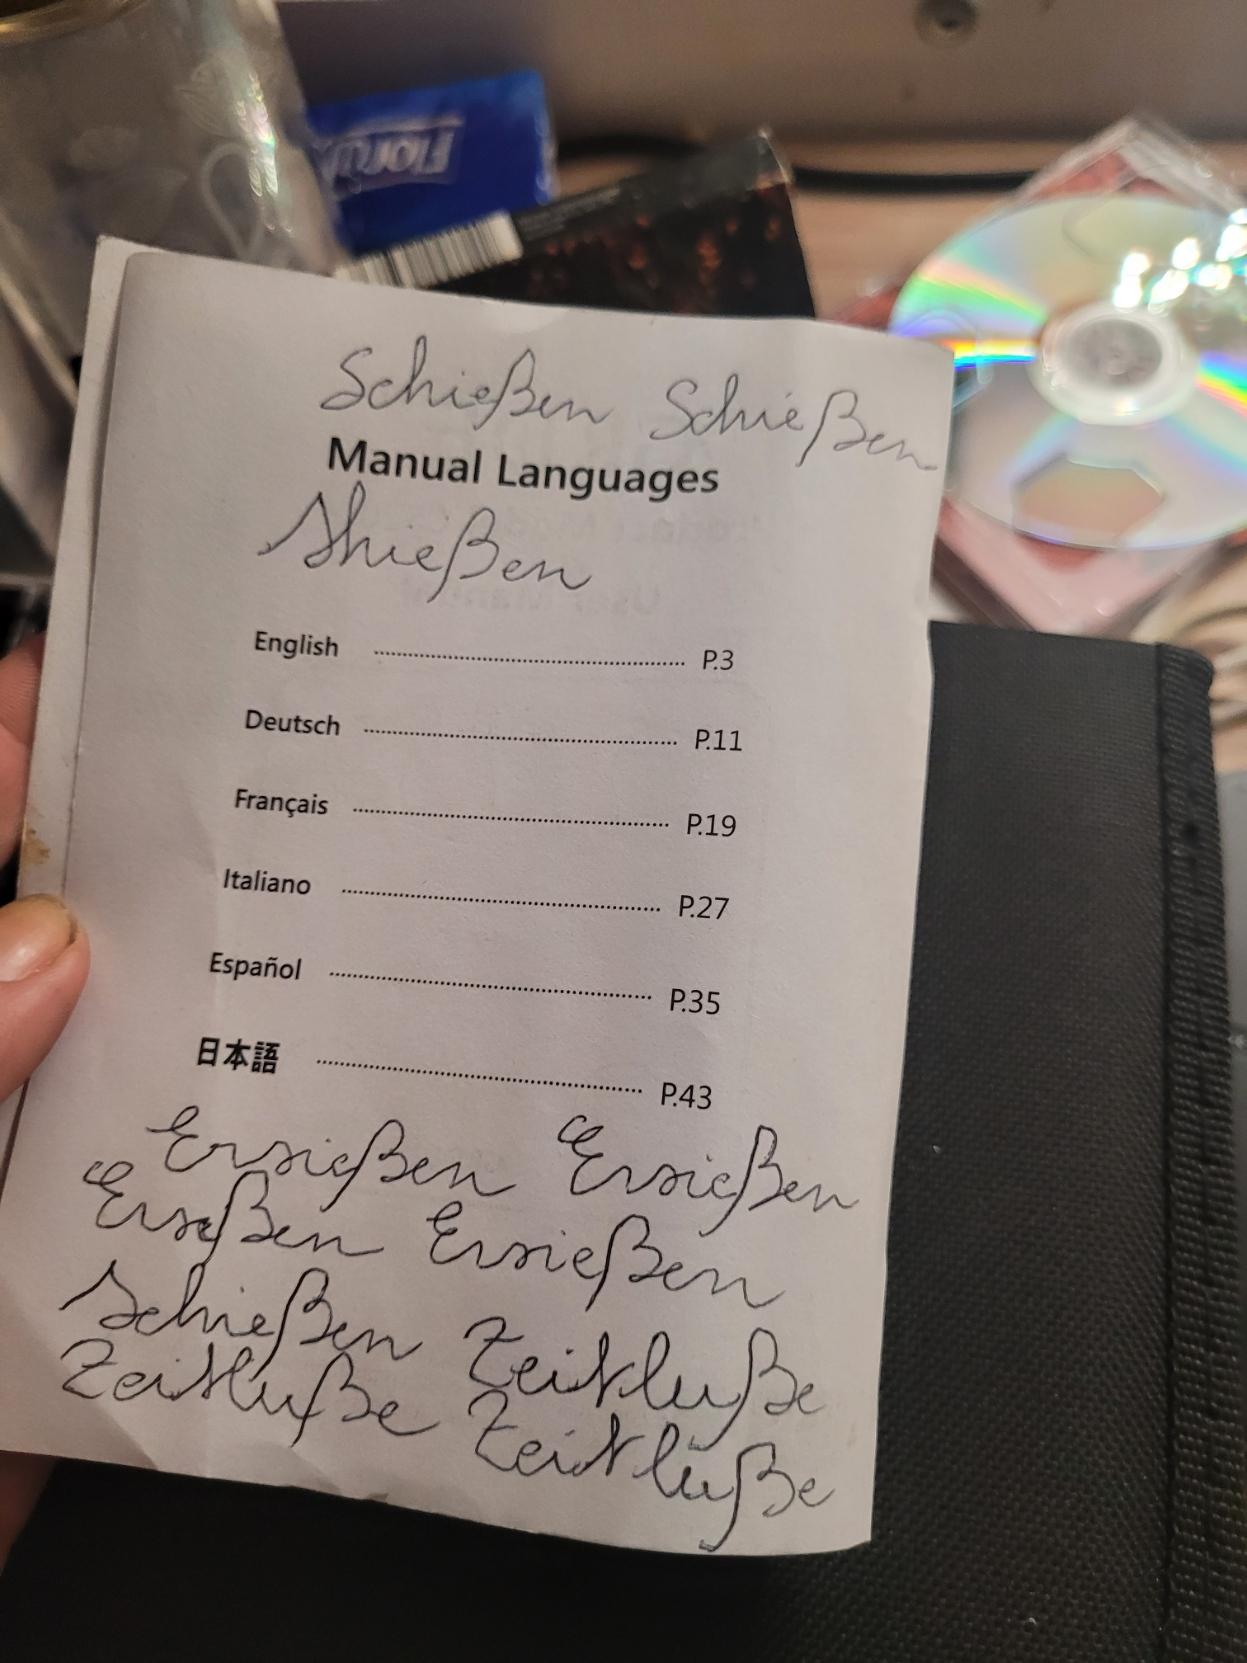 Schießen Schießen
Manual Languages
Schießen
English P.3
Deutsch P.11
Français P.19
Italiano P.27
Español P.35
日本語 P.43
Ersießen Ersießen
Erseßen Ersießen
Schießen Zeitkluße
Zeitkluße Zeitkluße